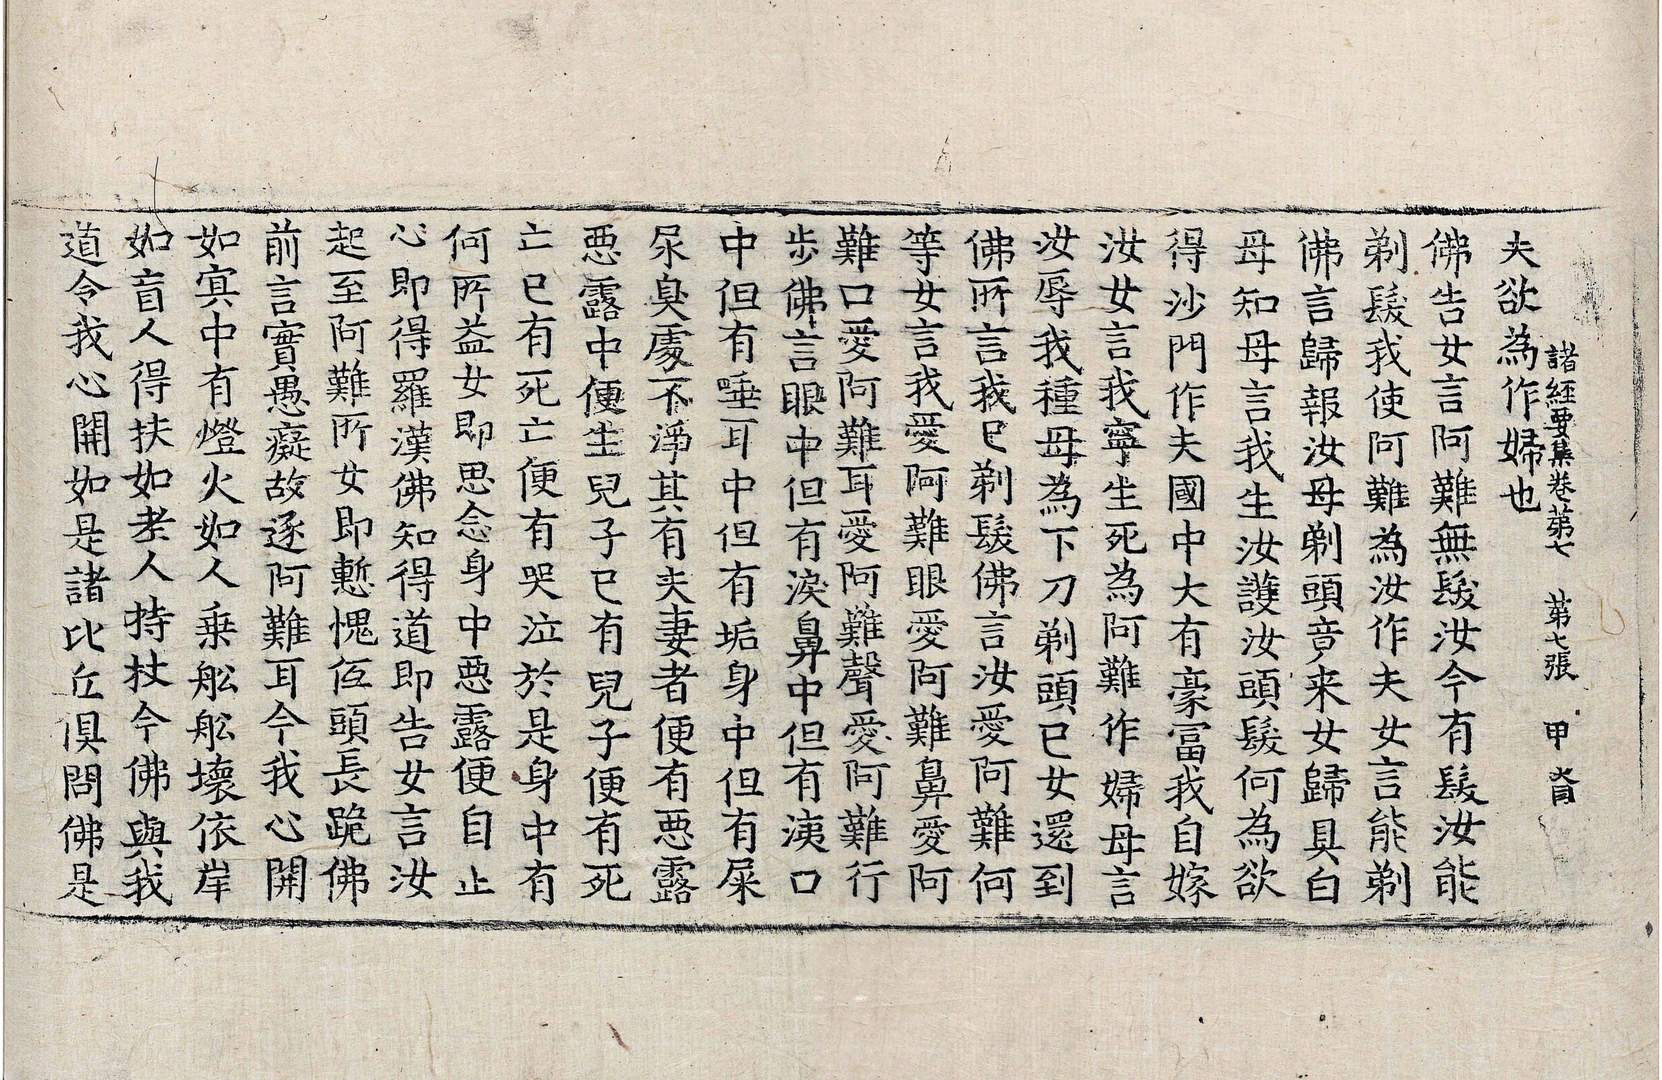 諸經要集卷第七　第七張　甲　䏍
夫欲為作婦也
佛告女言阿難無髮汝今有髮汝能
剃髮我使阿難為汝作夫女言能剃
佛言歸報汝母剃頭竟来女歸具白
母知母言我生汝護汝頭髮何為欲
得沙門作夫國中大有豪冨我自嫁
汝女言我寧生死為阿難作婦母言
汝辱我種母為下刀剃頭已女還到
佛所言我已剃髮佛言汝愛阿難何
等女言我愛阿難眼愛阿難鼻愛阿
難口愛阿難耳愛阿難聲愛阿難行
步佛言眼中但有淚鼻中但有洟口
中但有唾耳中但有垢身中但有屎
尿臭處不淨其有夫妻者便有惡露
惡露中便生兒子已有兒子便有死
亡已有死亡便有哭泣於是身中有
何所益女即思念身中惡露便自止
心即得羅漢佛知得道即告女言汝
起至阿難所女即慙愧低頭長跪佛
前言實愚癡故逐阿難耳今我心開
如冥中有燈火如人乗舩舩壞依岸
如盲人得扶如老人持杖今佛與我
道令我心開如是諸比丘俱問佛是